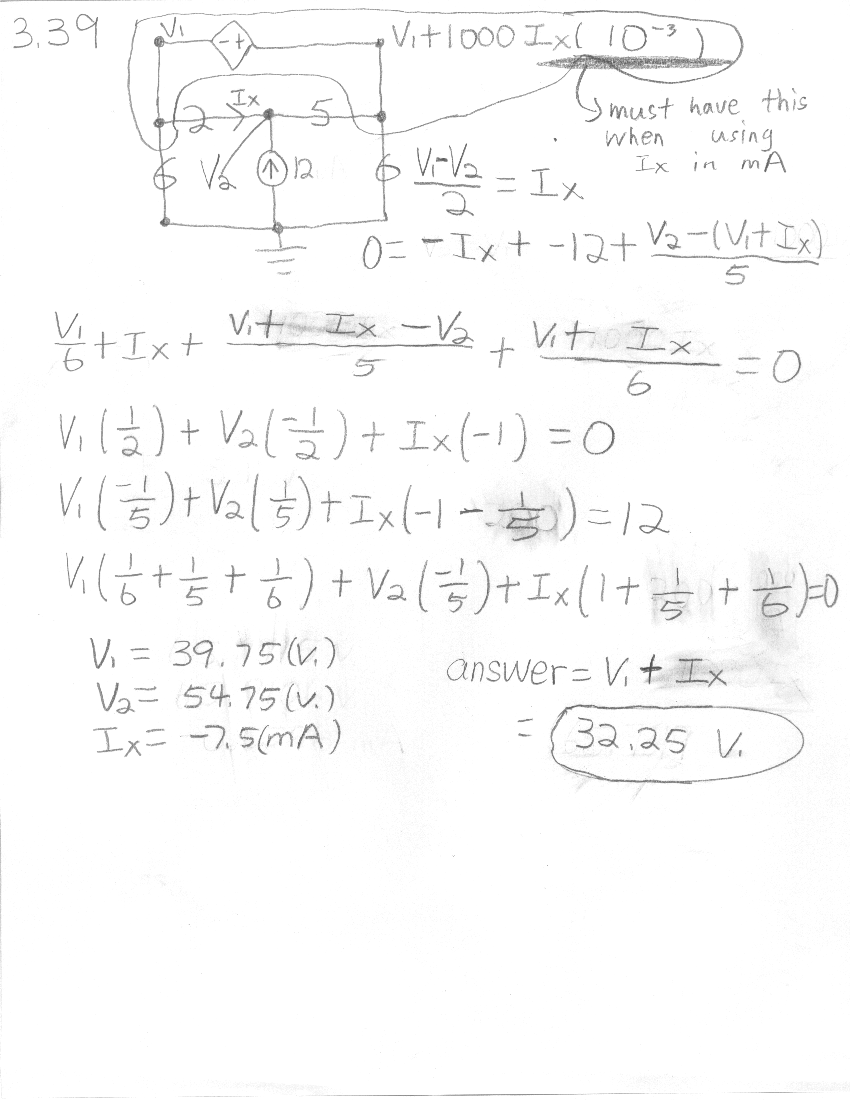 3.39
V₁ - + V₁+1000 Ix( 10⁻³ )
must have this
when using
Ix in mA
Ix
2 5
6 V₂ 12 6
(V₁-V₂)/2 = Ix
0 = -Ix + -12 + (V₂-(V₁+Ix))/5
V₁/6 + Ix + (V₁+ Ix -V₂)/5 + (V₁+ Ix)/6 = 0
V₁(1/2) + V₂(-1/2) + Ix(-1) = 0
V₁(-1/5)+V₂(1/5)+Ix(-1 - 1/5)=12
V₁(1/6 + 1/5 + 1/6) + V₂(-1/5)+Ix(1+ 1/5 + 1/6)=0
V₁ = 39.75(V.)
V₂= 54.75(V.)
Ix= -7.5(mA)
answer= V₁ + Ix
= 32.25 V.